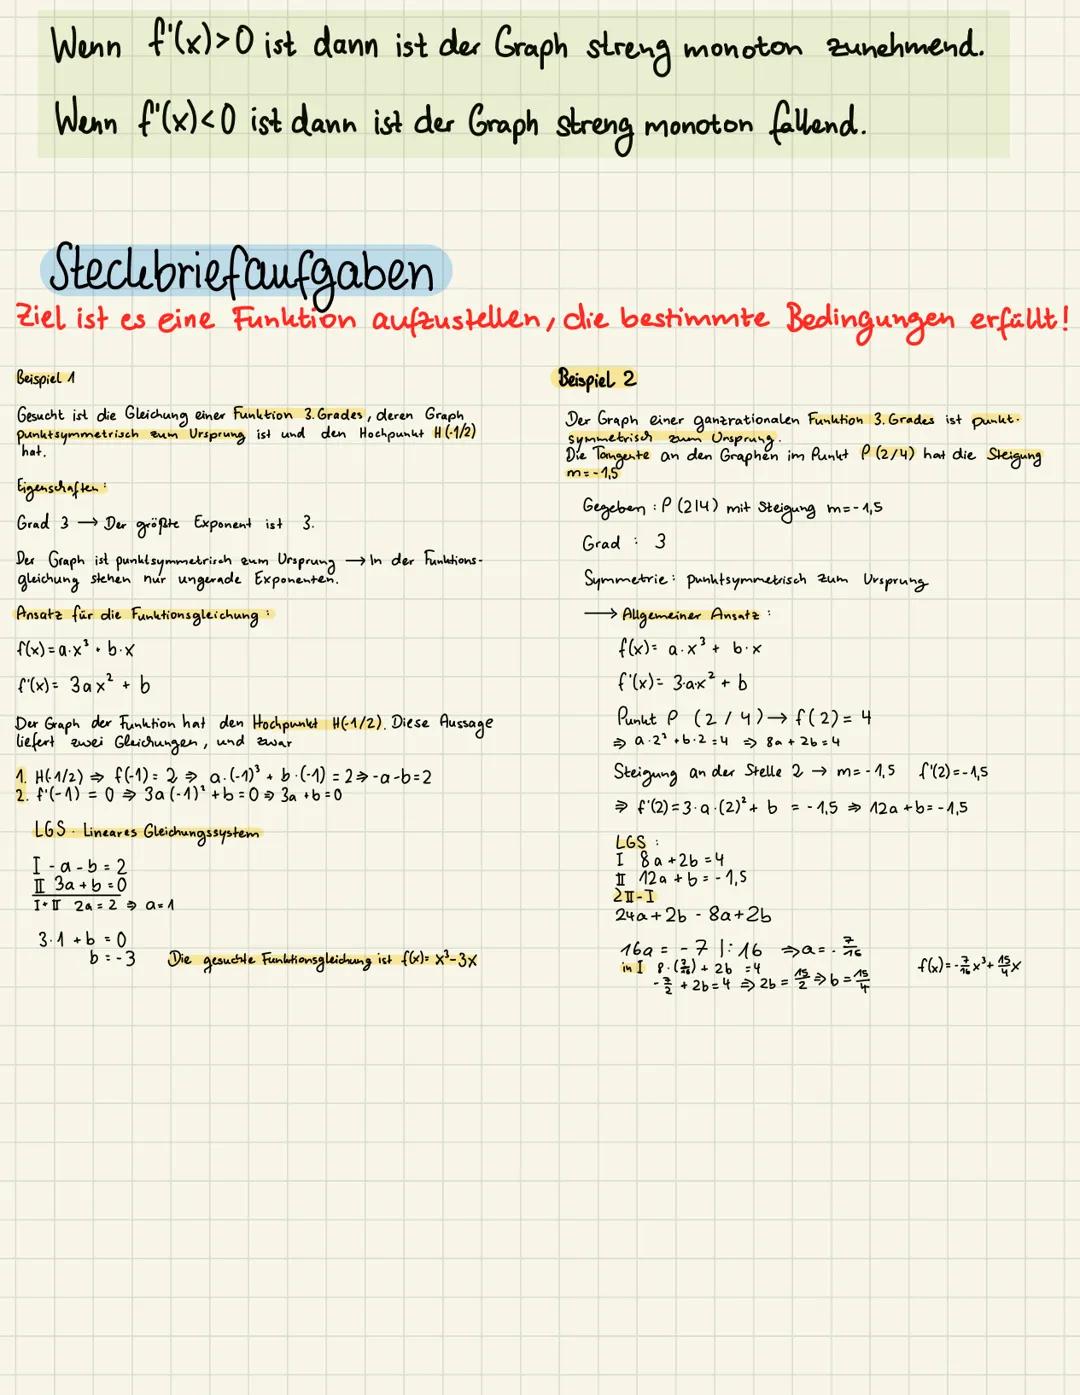 Wenn f'(x)>0 ist dann ist der Graph streng monoton zunehmend.
Wenn f'(x)<0 ist dann ist der Graph streng monoton fallend.
Steckbriefaufgaben
Ziel ist es eine Funktion aufzustellen, die bestimmte Bedingungen erfüllt!
Beispiel 1
Gesucht ist die Gleichung einer Funktion 3. Grades, deren Graph
punktsymmetrisch zum Ursprung ist und den Hochpunkt H(-1/2)
hat.
Eigenschaften:
Grad 3 → Der größte Exponent ist 3.
Der Graph ist punktsymmetrisch zum Ursprung → In der Funktions-
gleichung stehen nur ungerade Exponenten.
Ansatz für die Funktionsgleichung:
f(x)=a·x³ + b·x
f'(x)= 3ax² + b
Der Graph der Funktion hat den Hochpunkt H(-1/2). Diese Aussage
liefert zwei Gleichungen, und zwar
1. H(-1/2) ⇒ f(-1)= 2 ⇒ a·(-1)³ + b·(-1) = 2 ⇒ -a-b=2
2. f'(-1) = 0 ⇒ 3a(-1)² + b = 0 ⇒ 3a + b = 0
LGS - Lineares Gleichungssystem
I -a-b = 2
II 3a+b = 0
I+II 2a = 2 ⇒ a=1
3·1 + b = 0
b = -3 Die gesuchte Funktionsgleichung ist f(x)= x³-3x
Beispiel 2
Der Graph einer ganzrationalen Funktion 3. Grades ist punkt-
symmetrisch zum Ursprung.
Die Tangente an den Graphen im Punkt P (2/4) hat die Steigung
m=-1,5
Gegeben: P (2|4) mit Steigung m=-1,5
Grad : 3
Symmetrie: punktsymmetrisch zum Ursprung
→ Allgemeiner Ansatz :
f(x)= a·x³ + b·x
f'(x)= 3·a·x² + b
Punkt P (2/4) → f(2)= 4
⇒ a·2³ + b·2 = 4 ⇒ 8a + 2b = 4
Steigung an der Stelle 2 → m=-1,5 f'(2)=-1,5
⇒ f'(2)=3·a·(2)² + b = -1,5 ⇒ 12a + b = -1,5
LGS :
I 8a+2b=4
II 12a + b = -1,5
2II-I
24a+2b - 8a+2b
16a = -7 |:16 ⇒ a = -7/16
in I 8·(7/16) + 2b = 4
-7/2 + 2b = 4 ⇒ 2b = 15/2 ⇒ b = 15/4
f(x)=-7/16x³+15/4x